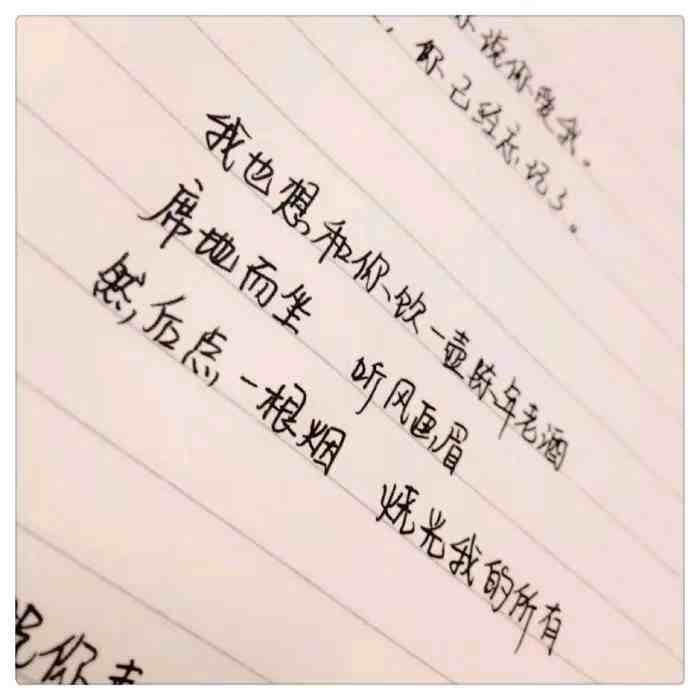 你说你爱我。
，你已经忘记了。
我也想和你、饮一壶陈年老酒
席地而坐 听风画眉
然后点一根烟 烧光我的所有
说你